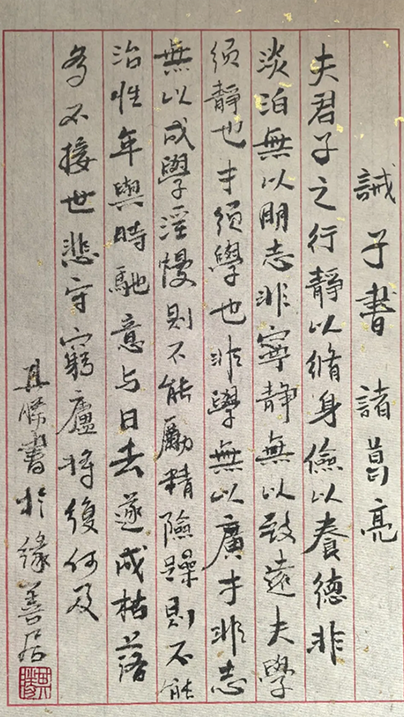 誡子書 諸葛亮
夫君子之行靜以脩身儉以養德非
淡泊無以明志非寧靜無以致遠夫學
須靜也才須學也非學無以廣才非志
無以成學淫慢則不能勵精險躁則不能
治性年與時馳意与日去遂成枯落
多不接世悲守窮廬將復何及
書於緣善居